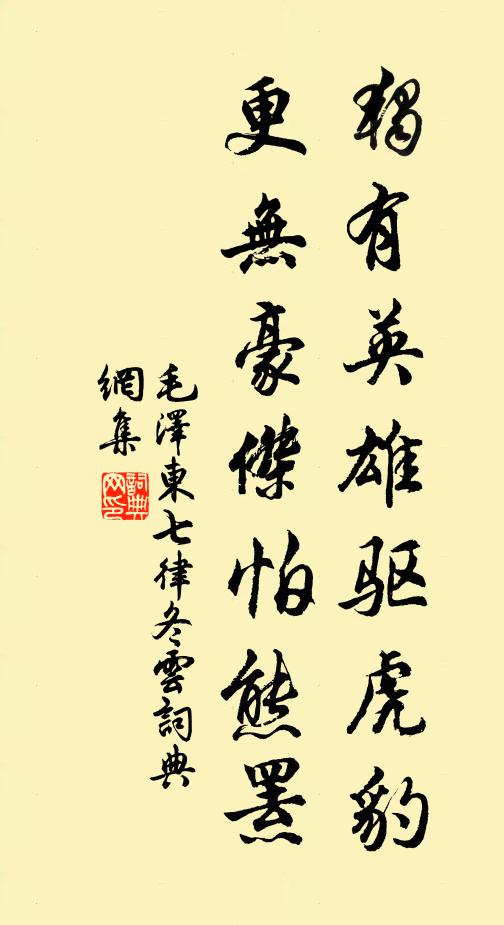 獨有英雄驱虎豹
更無豪傑怕熊羆
毛澤東七律冬雲詞典
網集
詞典
网印